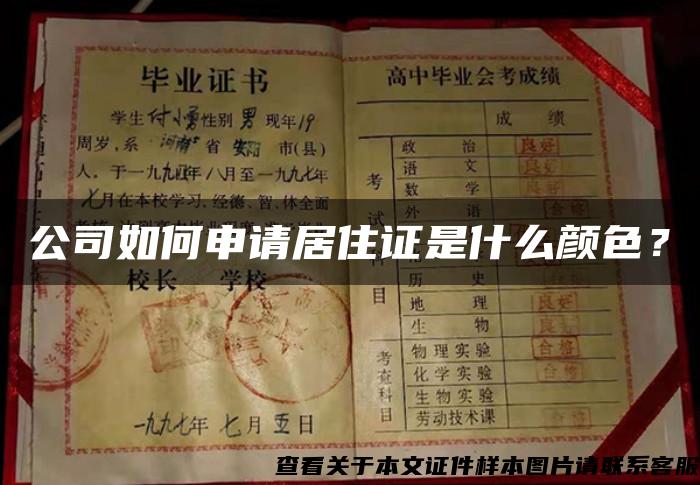 毕业证书
学生付小勇性别男现年19
周岁,系河南省安阳市(县)
人,于一九九四年八月至一九九七年
七月在本校学习,经德、智、体全面
公司如何申请居住证是什么颜色?
校长 学校
一九九七年七月五日
高中毕业会考成绩
成 绩
考试科目
政 治 良好
语 文 良好
数 学 良好
外 语
历 史
地 理 良好
生 物 良好
考查科目
物理实验 合格
化学实验 合格
生物实验
劳动技术课 合格
查看关于本文证件样本图片请联系客服